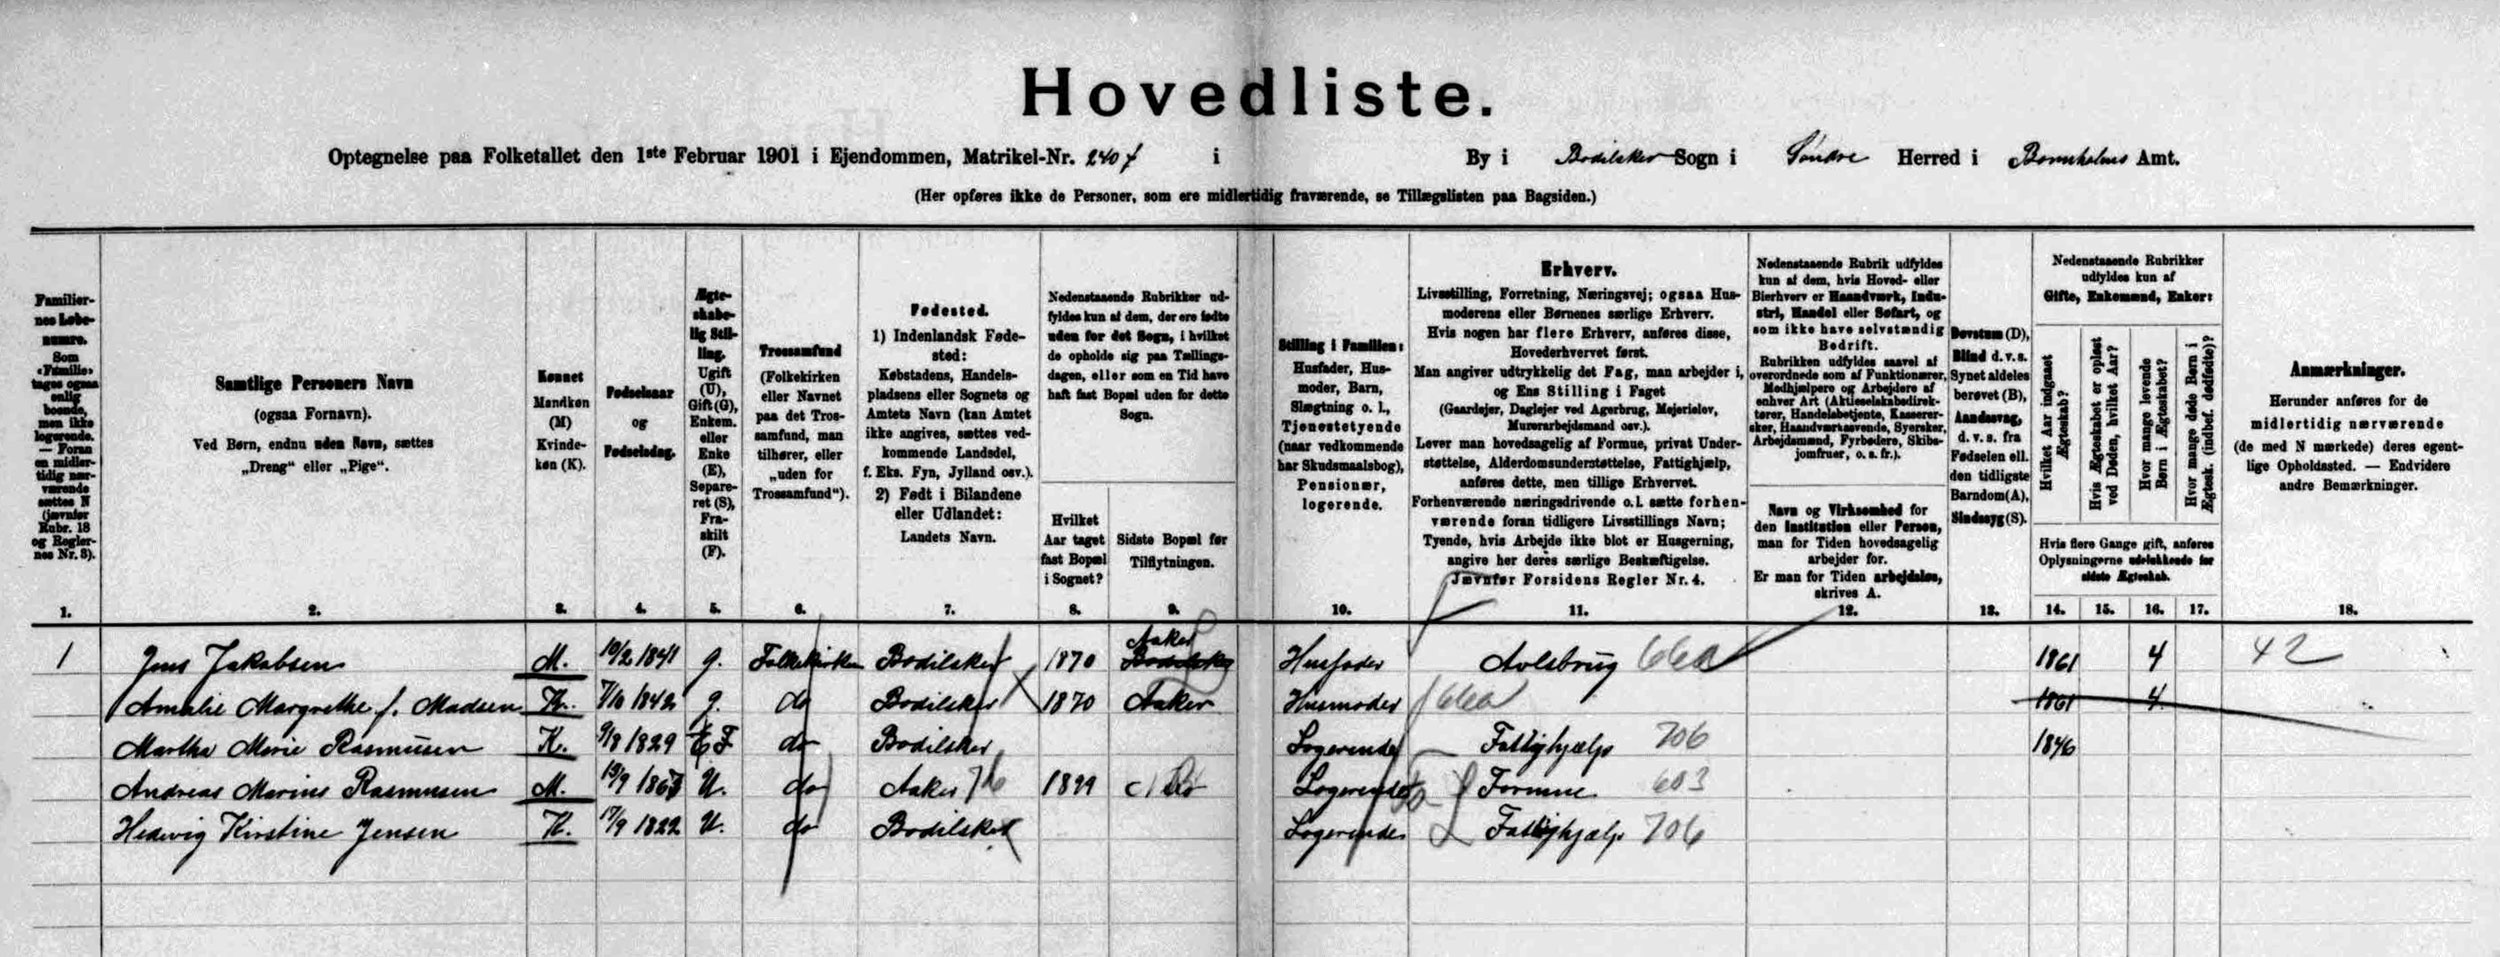 Hovedliste.
Optegnelse paa Folketallet den 1ste Februar 1901 i Ejendommen, Matrikel-Nr. 240 f i By i Bodilsker Sogn i Søndre Herred i Bornholms Amt.
(Her opføres ikke de Personer, som ere midlertidig fraværende, se Tillægslisten paa Bagsiden.)
Familier-
nes Løbe-
numre.
Som
«Familie»
tages ogsaa
enlig
boende,
men ikke
logerende.
— Foran
en midler-
tidig nær-
værende
sættes N
(jævnfør
Rubr. 18
og Regler-
nes Nr. 3).
1.
Samtlige Personers Navn
(ogsaa Fornavn).
Ved Børn, endnu uden Navn, sættes
„Dreng" eller „Pige".
2.
Kønnet
Mandkøn
(M)
Kvinde-
køn (K).
3.
Fødselsaar
og
Fødselsdag.
4.
Ægte-
skabe-
lig Stil-
ling.
Ugift
(U),
Gift (G),
Enkem.
eller
Enke
(E),
Separe-
ret (S),
Fra-
skilt
(F).
5.
Trossamfund
(Folkekirken
eller Navnet
paa det Tros-
samfund, man
tilhører, eller
„uden for
Trossamfund").
6.
Fødested.
1) Indenlandsk Føde-
sted:
Købstadens, Handels-
pladsens eller Sognets og
Amtets Navn (kan Amtet
ikke angives, sættes ved-
kommende Landsdel,
f. Eks. Fyn, Jylland osv.).
2) Født i Bilandene
eller Udlandet:
Landets Navn.
7.
Nedenstaaende Rubrikker ud-
fyldes kun af dem, der ere fødte
uden for det Sogn, i hvilket
de opholde sig paa Tællings-
dagen, eller som en Tid have
haft fast Bopæl uden for dette
Sogn.
Hvilket
Aar taget
fast Bopæl
i Sognet?
8.
Sidste Bopæl før
Tilflytningen.
9.
Stilling i Familien:
Husfader, Hus-
moder, Barn,
Slægtning o. l.,
Tjenestetyende
(naar vedkommende
har Skudsmaalsbog),
Pensionær,
logerende.
10.
Erhverv.
Livsstilling, Forretning, Næringsvej; ogsaa Hus-
moderens eller Børnenes særlige Erhverv.
Hvis nogen har flere Erhverv, anføres disse,
Hovederhvervet først.
Man angiver udtrykkelig det Fag, man arbejder i,
og Ens Stilling i Faget
(Gaardejer, Daglejer ved Agerbrug, Mejerielev,
Murerarbejdsmand osv.).
Lever man hovedsagelig af Formue, privat Under-
støttelse, Alderdomsunderstøttelse, Fattighjælp,
anføres dette, men tillige Erhvervet.
Forhenværende næringsdrivende o. l. sætte forhen-
værende foran tidligere Livsstillings Navn;
Tyende, hvis Arbejde ikke blot er Husgerning,
angive her deres særlige Beskæftigelse.
Jævnfør Forsidens Regler Nr. 4.
11.
Nedenstaaende Rubrik udfyldes
kun af dem, hvis Hoved- eller
Bierhverv er Haandværk, Indu-
stri, Handel eller Søfart, og
som ikke have selvstændig
Bedrift.
Rubrikken udfyldes saavel af
overordnede som af Funktionærer,
Medhjælpere og Arbejdere af
enhver Art (Aktieselskabsdirek-
tører, Handelsbetjente, Kasserer-
sker, Haandværkssvende, Syersker,
Arbejdsmænd, Fyrbødere, Skibs-
jomfruer, o. s. fr.).
Navn og Virksomhed for
den Institution eller Person,
man for Tiden hovedsagelig
arbejder for.
Er man for Tiden arbejdsløs,
skrives A.
12.
Døvstum (D),
Blind d. v. s.
Synet aldeles
berøvet (B),
Aandssvag,
d. v. s. fra
Fødselen ell.
den tidligste
Barndom (A),
Sindssyg (S).
13.
Nedenstaaende Rubrikker
udfyldes kun af
Gifte, Enkemænd, Enker:
Hvilket Aar indgaaet
Ægteskab?
Hvis Ægteskabet er opløst
ved Døden, hvilket Aar?
Hvor mange levende
Børn i Ægteskabet?
Hvor mange døde Børn i
Ægtesk. (indbef. dødfødte)?
Hvis flere Gange gift, anføres
Oplysningerne udelukkende for
sidste Ægteskab.
14. 15. 16. 17.
Anmærkninger.
Herunder anføres for de
midlertidig nærværende
(de med N mærkede) deres egent-
lige Opholdssted. — Endvidere
andre Bemærkninger.
18.
1 Jens Jakobsen M. 10/2 1841 g. Folkekirken Bodilsker 1870 Aaker Bodilsker Husfader Avlsbrug 66a 1861 4 42
Amalie Margrethe f. Madsen K. 7/10 1842 g. do Bodilsker 1870 Aaker Husmoder 66a 1861 4
Martha Marie Rasmusen K. 9/8 1829 E F do Bodilsker Logerende Fattighjælp 706 1846
Andreas Marius Rasmusen M. 19/9 1867 U. do Aaker 1899 Logerende Formue 603
Hedevig Kirstine Jensen K. 17/9 1822 U. do Bodilsker Logerende Fattighjælp 706